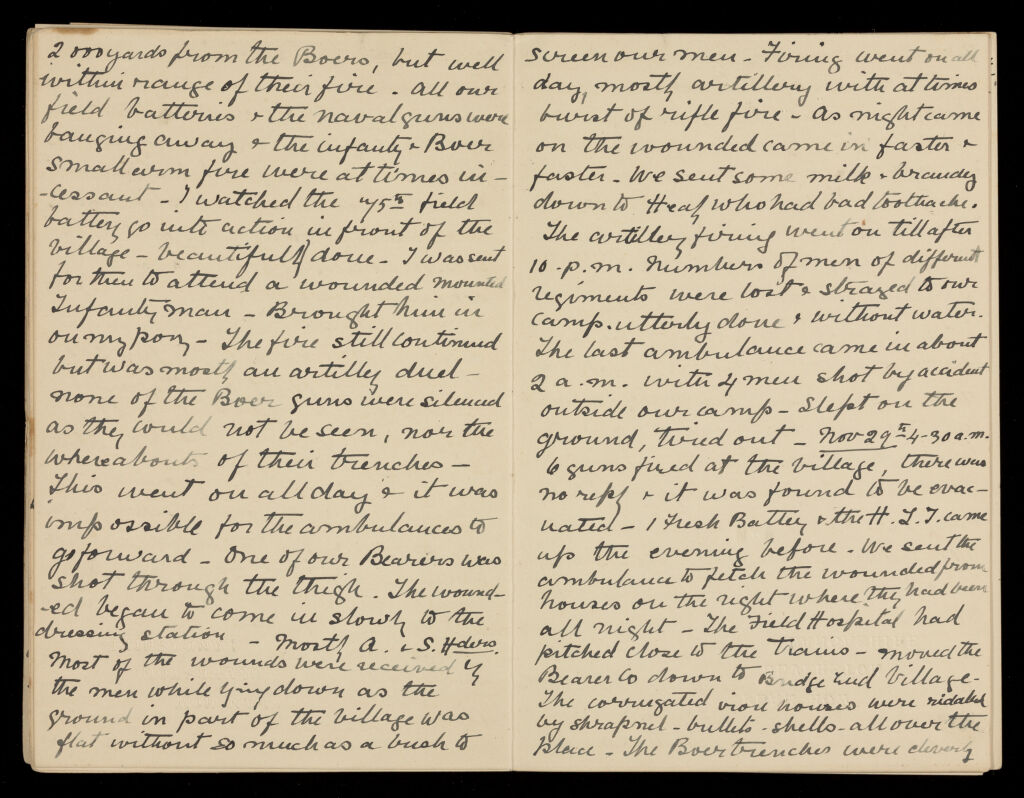 2000 yards from the Boers, but well
within range of their fire. All our
field batteries & the naval guns were
banging away & the infanty & Boer
small arm fire were at times in-
-cessant - I watched the 75th field
battery go into action in front of the
village - beautifully done - I was sent
for then to attend a wounded mounted
Infanty man - Brought him in
on my pony - The fire still continued
but was mostly an artilley duel -
none of the Boer guns were silenced
as they could not be seen, nor the
whereabouts of their trenches -
This went on all day & it was
impossible for the ambulances to
go forward - One of our Bearers was
shot through the thigh. The wound-
-ed began to come in slowly to the
dressing station - Mostly A. & S. Hders.
Most of the wounds were received by
the men while lying down as the
ground in part of the village was
flat without so much as a bush to
screen our men - Firing went on all
day, mostly artillery with at times
burst of rifle fire - As night came
on the wounded came in faster &
faster - We sent some milk & brandy
down to Heaf who had bad toothache.
The artillery firing went on till after
10-p.m. Numbers of men of different
regiments were lost & strayed to our
camp. utterly done & without water.
The last ambulance came in about
2 a.m. with 4 men shot by accident
outside our camp - Slept on the
ground, tired out - Nov 29th 4-30 a.m.
6 guns fired at the village, there was
no reply & it was found to be evac-
uated - 1 Fresh Battery & the H.L.I. came
up the evening before - We sent the
ambulance to fetch the wounded from
houses on the right where they had been
all night - The Field Hospital had
pitched close to the trains - moved the
Bearer Co down to Bridge End Village -
The corrugated iron houses were riddled
by shrapnel - bullets - shells - all over the
place - The Boer trenches were cleverly